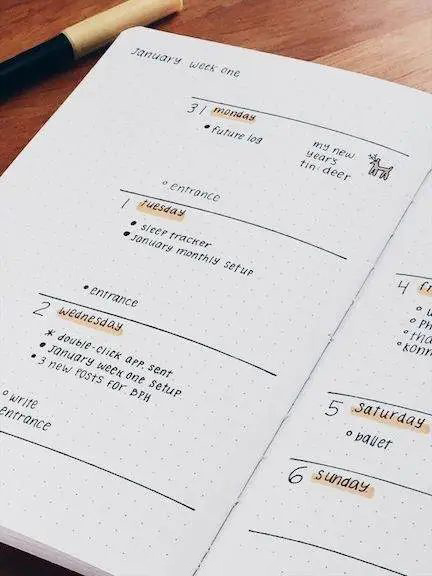 January week one
31 monday
• future log
my new
years
tin deer
○ entrance
1 tuesday
• sleep tracker
• January monthly setup
• entrance
2 wednesday
* double-click app sent
• January week one setup
• 3 new posts for BPH
○ write
entrance
4
5 saturday
○ ballet
6 sunday